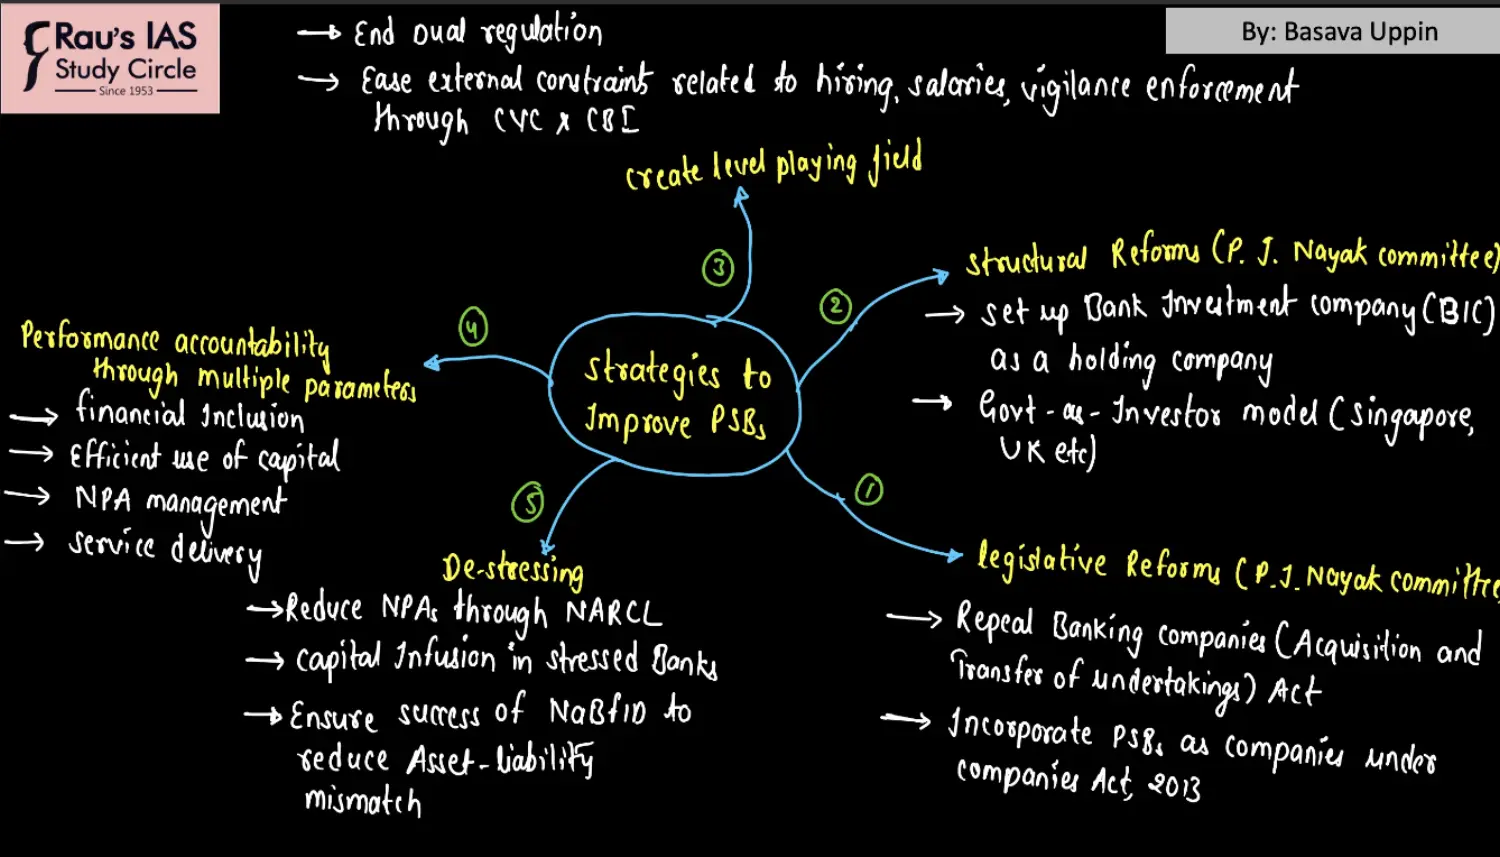 Rau's IAS
Study Circle
Since 1953
By: Basava Uppin
→ End Dual regulation
→ Ease external constraints related to hiring, salaries, vigilance enforcement
through CVC & CBI
create level playing field
③
②
structural Reforms (P. J. Nayak committee)
→ set up Bank Investment company (BIC)
as a holding company
→ Govt-as-Investor model (Singapore,
UK etc)
④
Performance accountability
through multiple parameters
→ financial Inclusion
→ Efficient use of capital
→ NPA management
→ service delivery
strategies to
Improve PSBs
①
legislative Reforms (P.J. Nayak committee
→ Repeal Banking companies (Acquisition and
Transfer of undertakings) Act
→ Incorporate PSBs as companies under
companies Act, 2013
⑤
De-stressing
→ Reduce NPAs through NARCL
→ capital Infusion in stressed Banks
→ Ensure success of NaBFID to
reduce Asset-liability
mismatch